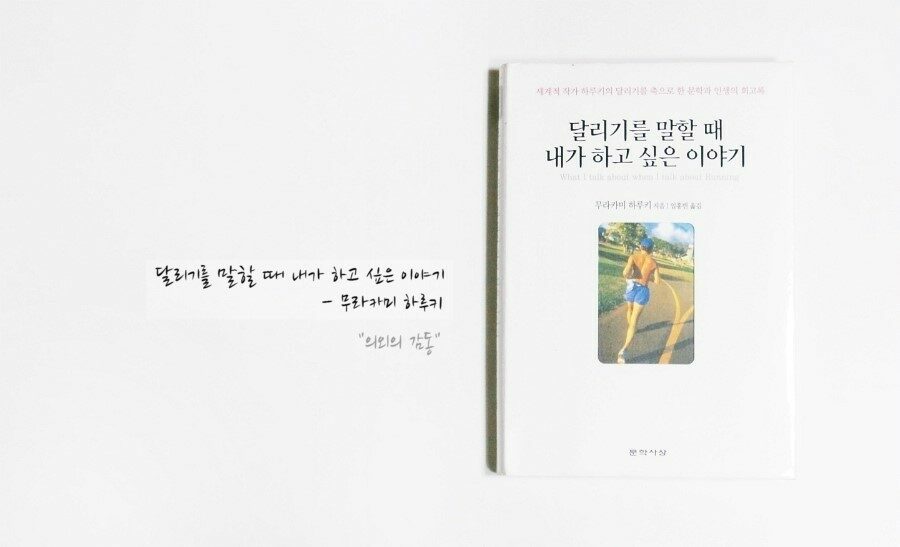 달리기를 말할 때 내가 하고 싶은 이야기
- 무라카미 하루키
"의외의 감동"
세계적 작가 하루키의 달리기를 축으로 한 문학과 인생의 회고록
달리기를 말할 때
내가 하고 싶은 이야기
What I talk about when I talk about Running
무라카미 하루키 지음 | 임홍빈 옮김
문학사상